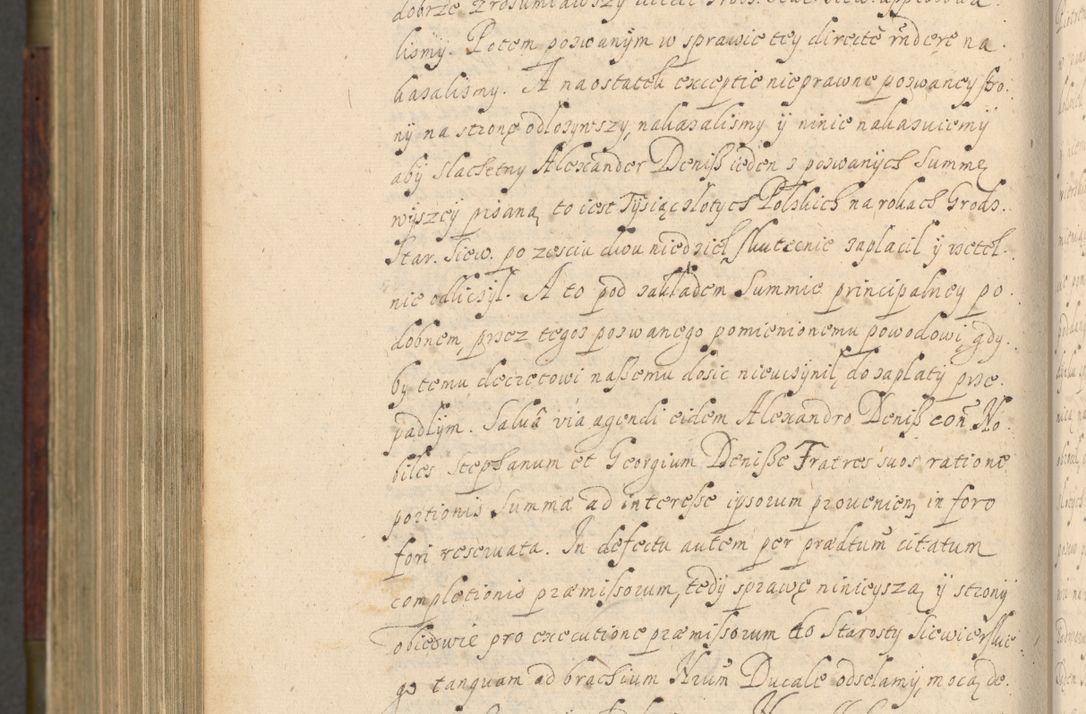 lismy. Potem pozwanym w sprawie tey directe rńdere na.
kazalismy. A naostatek exceptie nieprawne pozwaney stro.
ny na stronę odlozywszy, nakazalismy ÿ ninie nakazuiemÿ
abÿ Slachetny Alexander Denisz ieden z pozwanÿch Summę
wÿszeÿ pisaną, to iest Tysiąc zlotÿch Polskich na rokach Grodz.
Star. Siew. po zesciu dwu niedziel skutecznie zaplacil ÿ rzetel.
nie odliczÿl. A to pod zakładem Summie principalneÿ po.
dobnem, przez tegoz pozwanego pomienionemu powodowi, gdÿ.
by temu decretowi naszemu dosic nieuczÿnil, do zaplatÿ prze.
padlÿm. Salvâ via agendi eidem Alexandro Denisz con. No.
biles Stephanum et Georgium Denisze Fratres suos ratione
portionis Summæ ad interesse ipsorum provenien. in foro
fori reservata. In defectu autem per prædtum̃ citatum
completionis præmissorum, tedÿ sprawę ninieyszą ÿ stronÿ
obiedwie pro executione præmissorum do Starosty Siewierskie.
go tanquam ad brachium Nrum̃ Ducale odsełamÿ, mocą de.